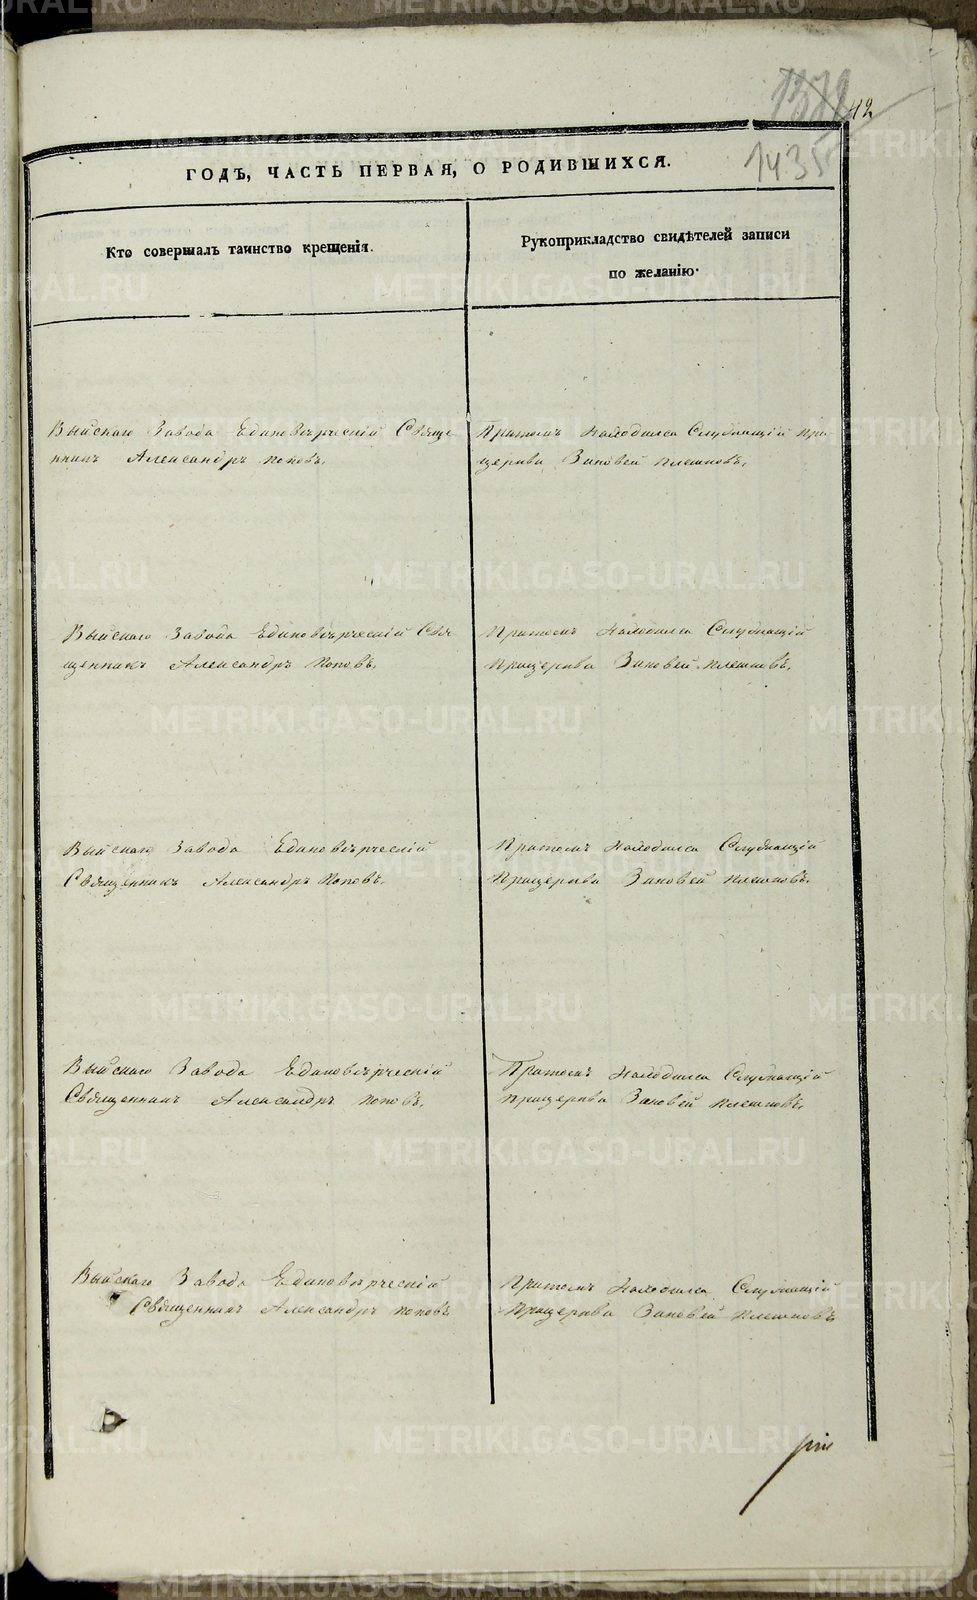 1372 12
1435
ГОДЪ, ЧАСТЬ ПЕРВАЯ, О РОДИВШИХСЯ.
Кто совершалъ таинство крещенія.
Рукоприкладство свидѣтелей записи
по желанію.
Выйскаго Завода Единовѣрческій Свяще
нникъ Александръ Поповъ.
Притомъ находился Служащій При
церква Зиновей Плешковъ.
Выйскаго Завода Единовѣрческій Свя
щенникъ Александръ Поповъ.
Притомъ находился Служащій
Прицерква Зиновей Плешковъ.
Выйскаго Завода Единовѣрческій
Священникъ Александръ Поповъ.
Притомъ находился Служащій
Прицерква Зиновей Плешковъ.
Выйскаго Завода Единовѣрческій
Священникъ Александръ Поповъ.
Притомъ находился Служащій
Прицерква Зиновей Плешковъ.
Выйскаго Завода Единовѣрческій
Священникъ Александръ Поповъ
Притомъ находился Служащій
Прицерква Зиновей Плешковъ
METRIKI.GASO-URAL.RU